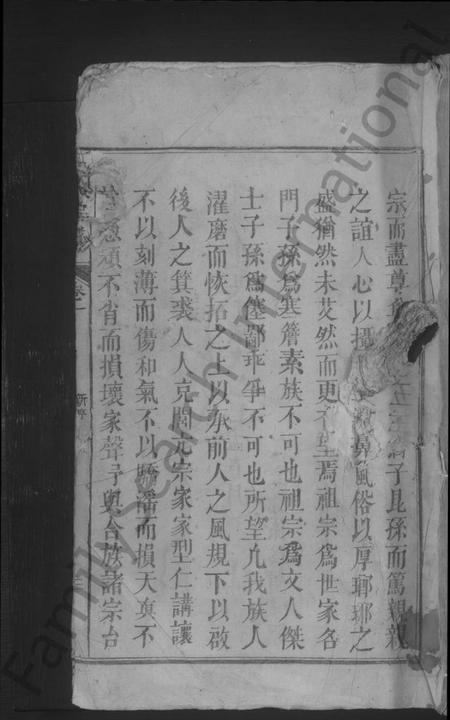 宗而盡尊子昆孫而篤親親
之誼人心以風俗以厚瑯琊之
盛猶然未艾然而更有望焉祖宗為世家名
門子孫為寒簷素族不可也祖宗為文人傑
士子孫為僿鄙乖爭不可也所望凡我族人
濯磨而恢拓之上以承前人之風規下以啟
後人之箕裘人人克閑元宗家家型仁講讓
不以刻薄而傷和氣不以驕淫而損天真不
頑不肖而損壞家聲予與合族諸宗台
卷一
FamilySearch International